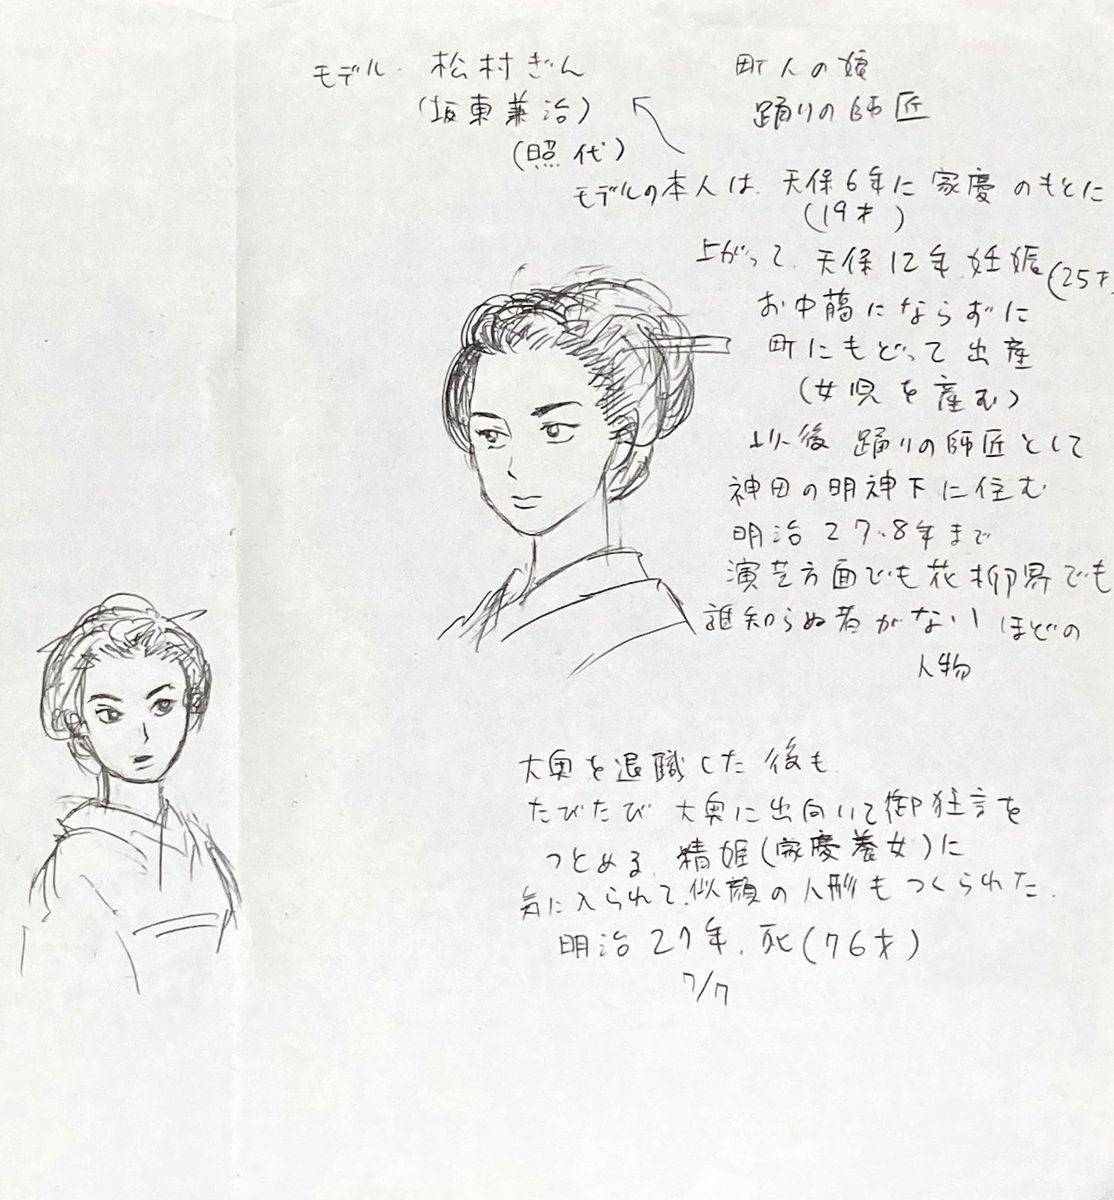 モデル. 松村ぎん
(坂東兼治)
(照代)
町人の娘
踊りの師匠
モデルの本人は、天保6年に家慶のもとに
(19才)
上がって、天保12年、妊娠(25才
お中藺にならずに
町にもどって出産
(女児を産む)
以後 踊りの師匠として
神田の明神下に住む
明治27.8年まで
演芸方面でも花柳界でも
誰知らぬ者がない ほどの
人物
大奥を退職した後も、
たびたび 大奥に出向いて御狂言を
つとめる、精姫(家慶養女)に
気に入られて、似顔の人形もつくられた.
明治27年、死(76才)
7/7